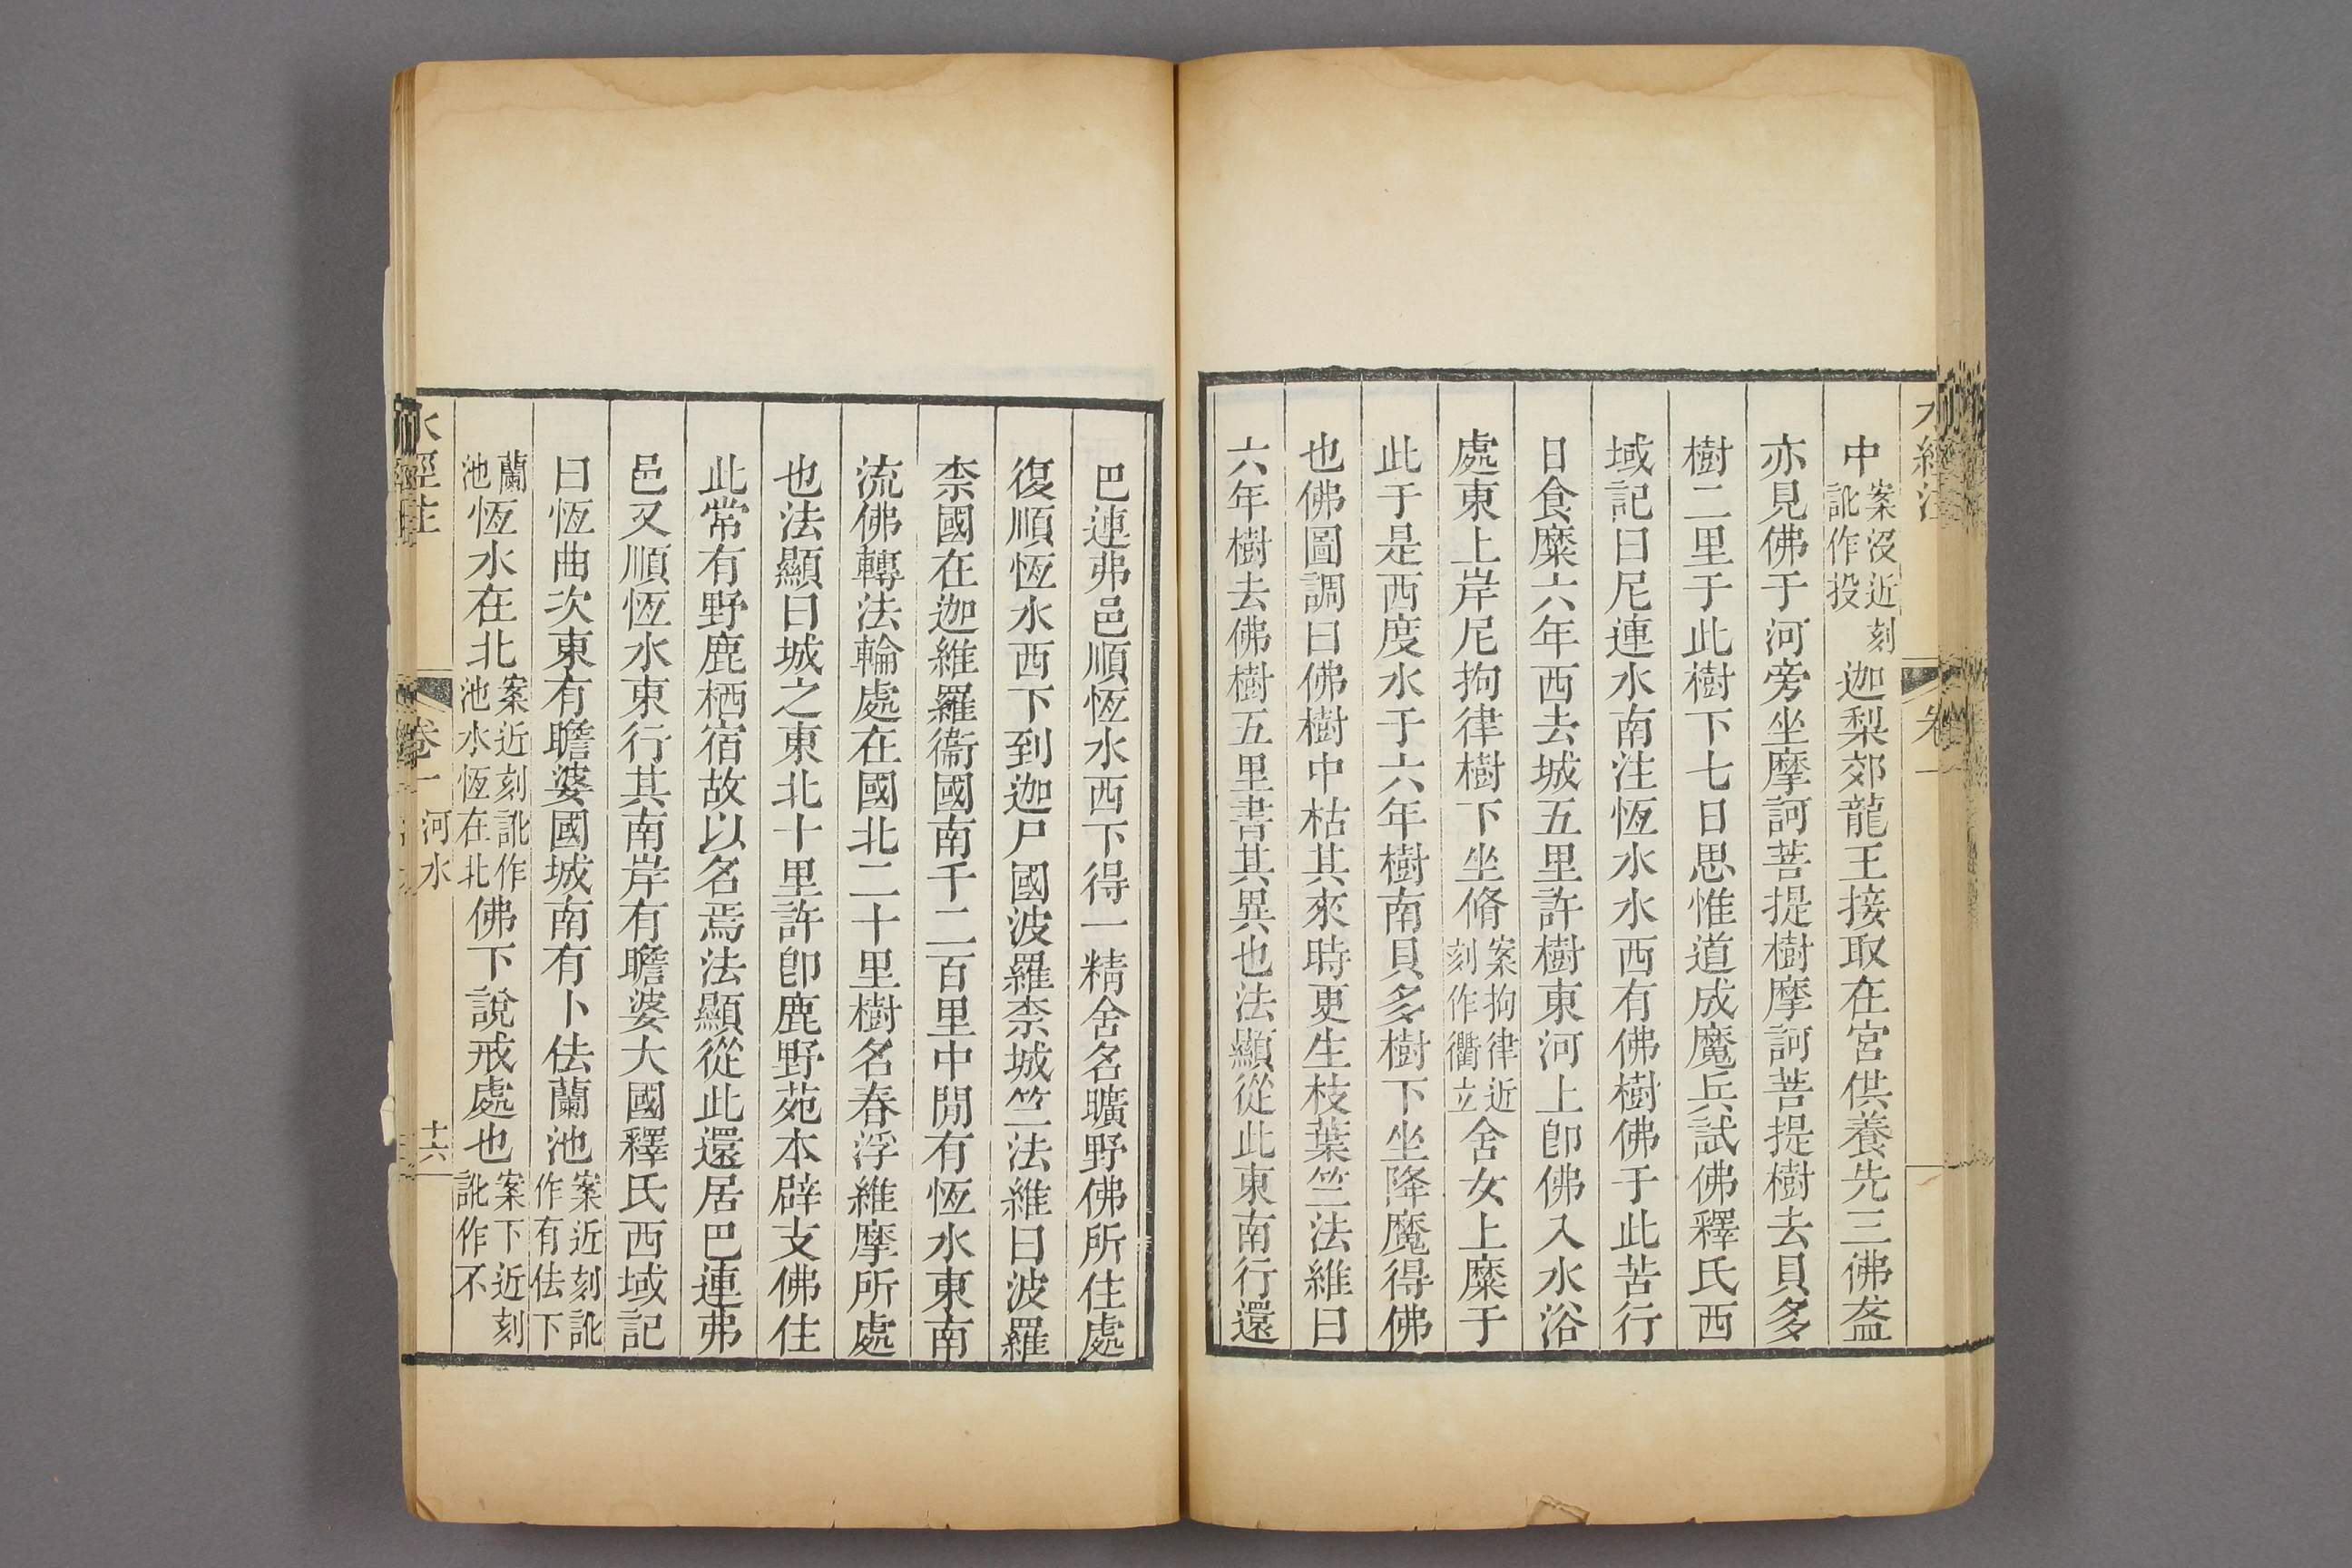 中案沒近刻訛作投迦梨郊龍王接取在宮供養先三佛盋
亦見佛于河旁坐摩訶菩提樹摩訶菩提樹去貝多
樹二里于此樹下七日思惟道成魔兵試佛釋氏西
域記曰尼連水南注恆水水西有佛樹佛于此苦行
日食糜六年西去城五里許樹東河上卽佛入水浴
處東上岸尼拘律樹下坐脩案拘律近刻作衢立舍女上糜于
此于是西度水于六年樹南貝多樹下坐降魔得佛
也佛圖調曰佛樹中枯其來時更生枝葉竺法維曰
六年樹去佛樹五里書其異也法顯從此東南行還
巴連弗邑順恆水西下得一精舍名曠野佛所住處
復順恆水西下到迦尸國波羅柰城竺法維曰波羅
柰國在迦維羅衞國南千二百里中閒有恆水東南
流佛轉法輪處在國北二十里樹名春浮維摩所處
也法顯曰城之東北十里許卽鹿野苑本辟支佛住
此常有野鹿栖宿故以名焉法顯從此還居巴連弗
邑又順恆水東行其南岸有瞻婆大國釋氏西域記
曰恆曲次東有瞻婆國城南有卜佉蘭池案近刻訛作有佉下
蘭池恆水在北案近刻訛作池水恆在北佛下說戒處也案下近刻訛作不
水經注 卷一 河水 十六